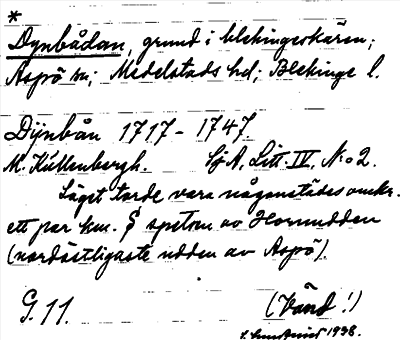 *
Dynbådan, grund i blekingeskären;
Aspö sn; Medelstads hd; Blekinge l.
Dÿnbån 1717-1747.
M. Kullenbergh. SjA, Litt. IV, N:o 2.
Läget torde vara någonstädes omkr.
ett par km. S spetsen av Hornudden
(nordöstligaste udden av Aspö).
G. 11. (Vänd!)
1938.